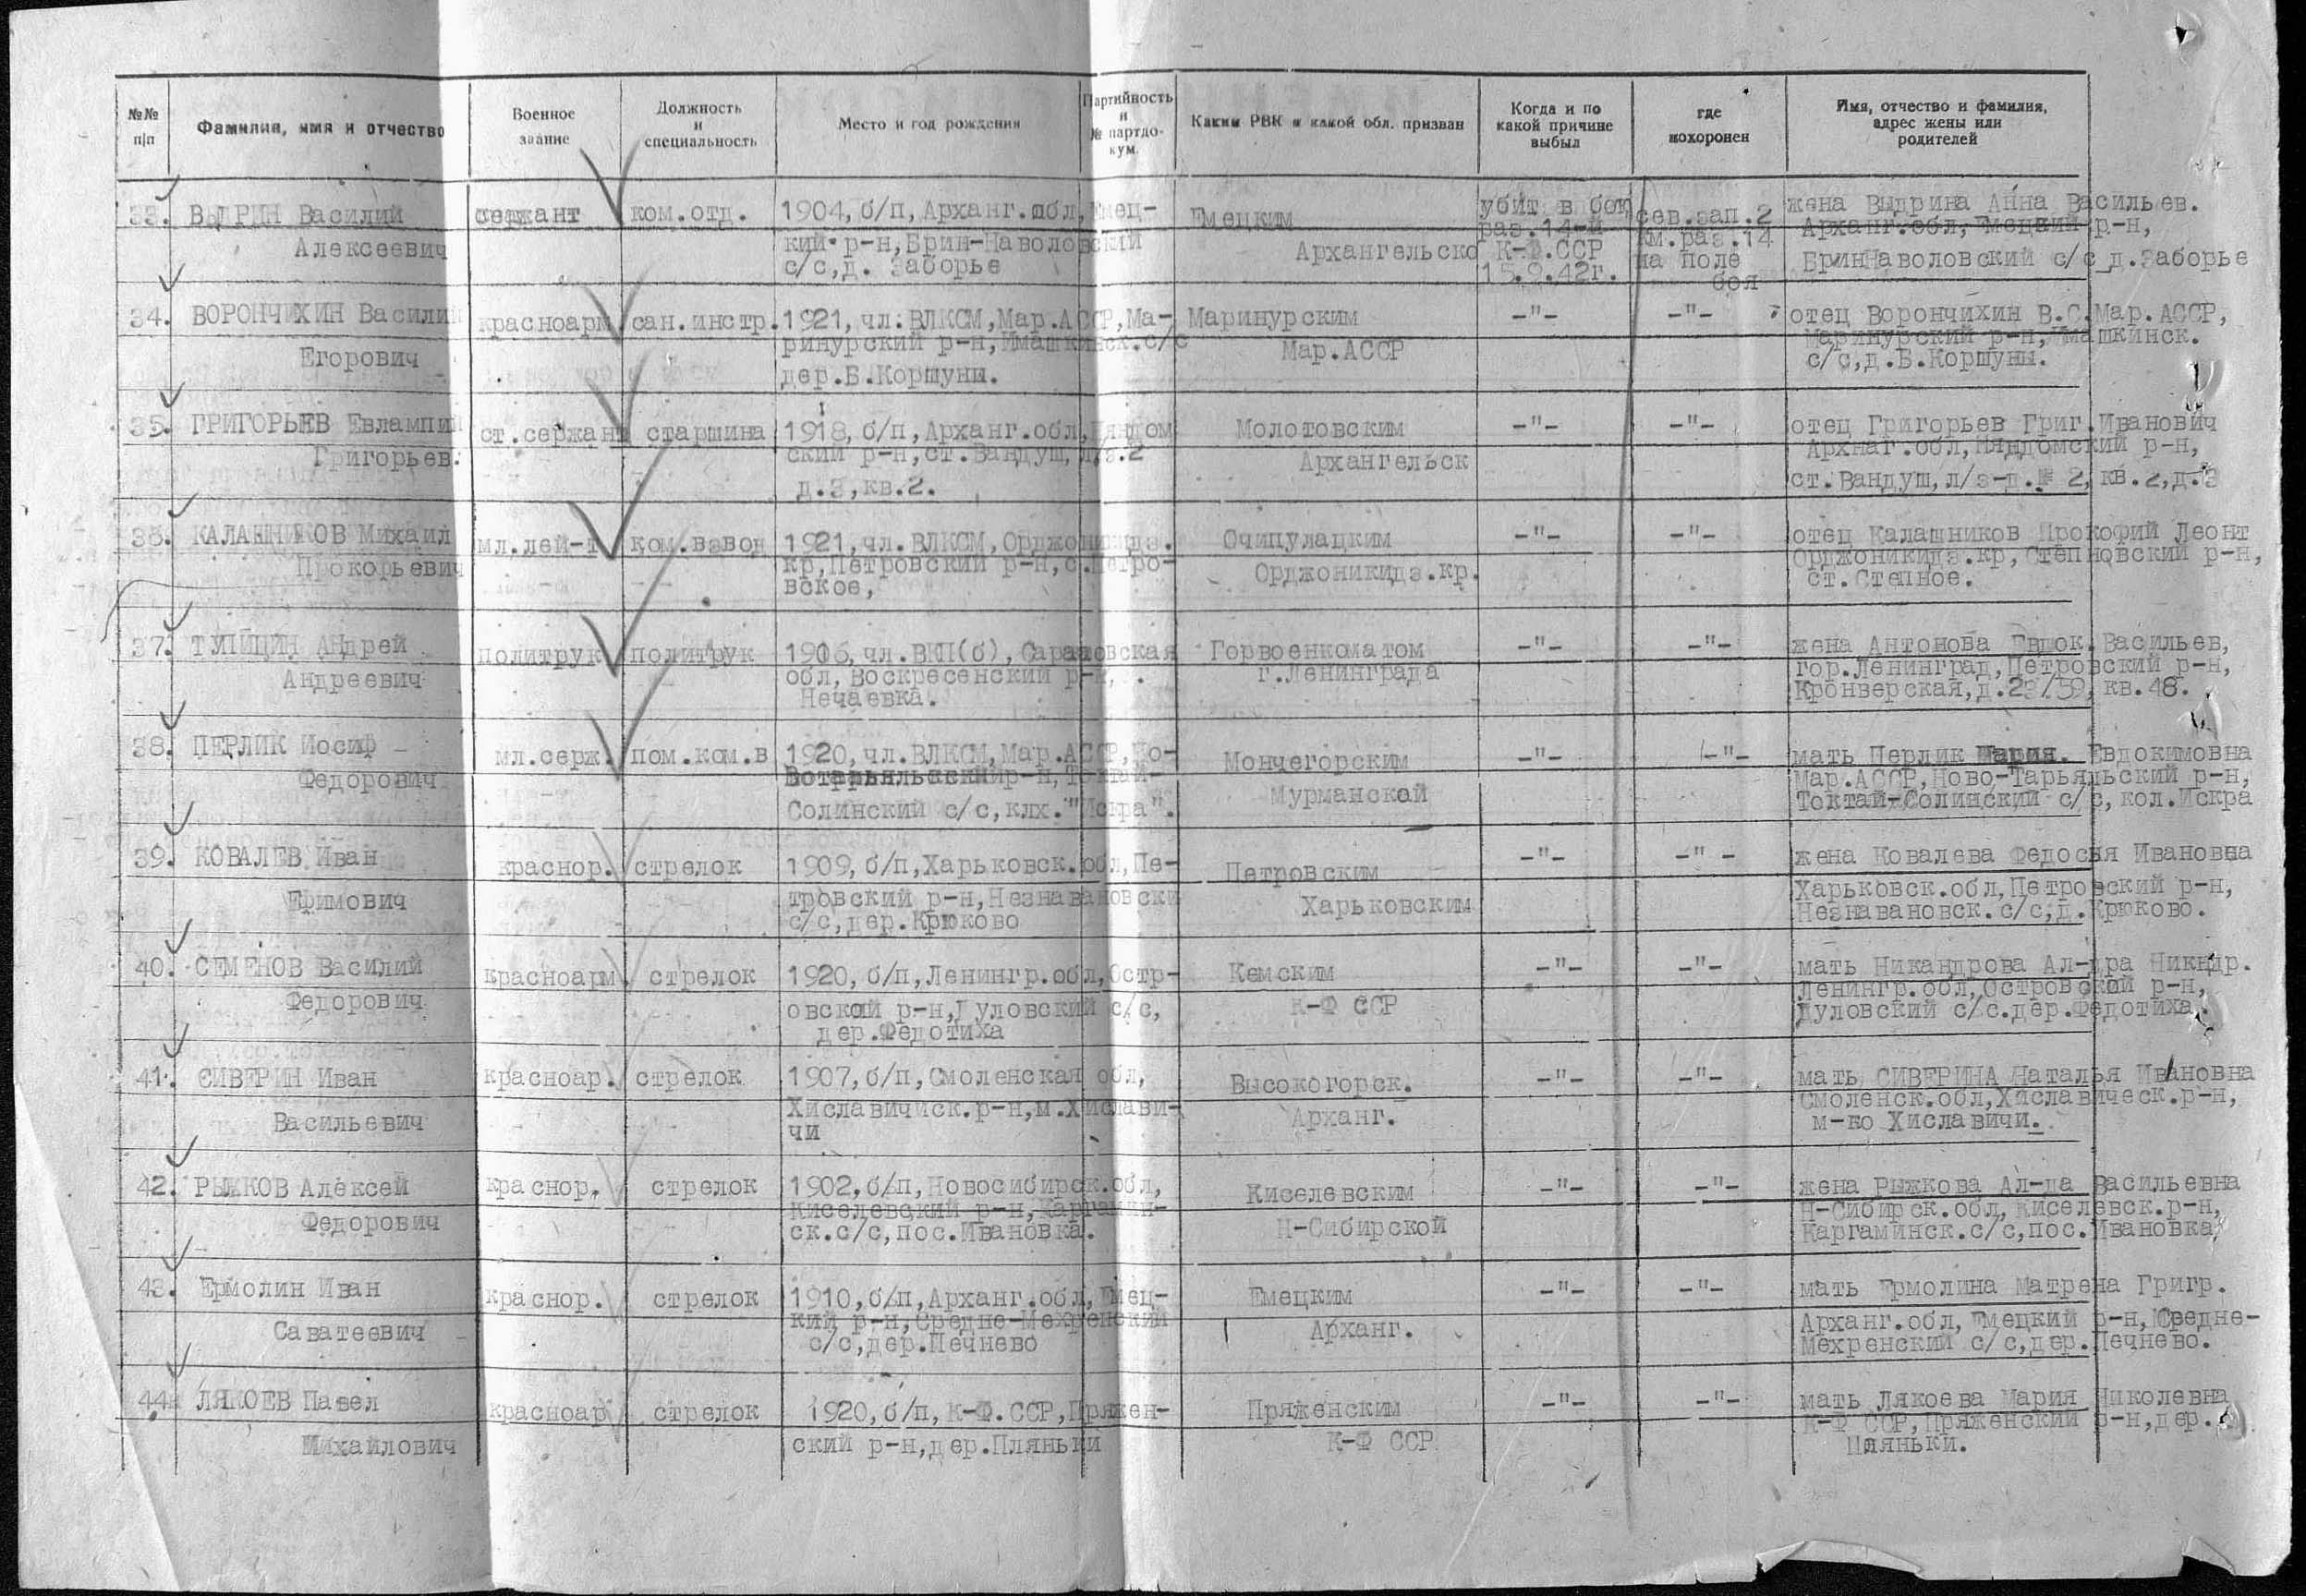 №№ п/п
Фамилия, имя и отчество
Военное звание
Должность и специальность
Место и год рождения
Партийность и № партдокум.
Каким РВК и какой обл. призван
Когда и по какой причине выбыл
где похоронен
Имя, отчество и фамилия, адрес жены или родителей
33. ВЫДРИН Василий сержант ком.отд. 1904, б/п, Арханг.обл, Емец- Емецким убит в бою сев.зап.2 жена Выдрина Анна Васильев.
Алексеевич кий р-н, Брин-Наволовский Архангельско раз.14-й К-Ф.ССР км.раз.14 на поле Арханг.обл, Емецкий р-н,
с/с,д. Заборье 15.9.42г. боя БринНаволовский с/с д.Заборье
34. ВОРОНЧИХИН Васили красноарм сан.инстр. 1921, чл.ВЛКСМ, Мар.АССР, Ма- Маринурским -"- -"- отец Ворончихин В.С. Мар.АССР,
Егорович ринурский р-н, Имашкинск.с/с Мар.АССР Маринурский р-н, Имашкинск.
дер.Б.Коршуны. с/с,д.Б.Коршуны.
35. ГРИГОРЬЕВ Евлампий ст.сержант старшина 1918, б/п, Арханг.обл, Няндом Молотовским -"- -"- отец Григорьев Григ.Иванович
Григорьев. ский р-н, ст.Вандуш, л/з.2 Архангельск Архнаг.обл, Няндомский р-н,
д.3, кв.2. ст.Вандуш, л/з-д.№ 2, кв.2, д.3
36. КАЛАШНИКОВ Михаил мл.лей-т ком.взвод 1921, чл.ВЛКСМ, Орджоникидз. Очипулацким -"- -"- отец Калашников Прокофий Леонт
Прокофьевич кр, Петровский р-н, с.Петро- Орджоникидз.кр. Орджоникидз.кр, Степновский р-н,
вское, ст.Степное.
37. ТУПИЦИН Андрей политрук политрук 1906, чл.ВКП(б), Саратовская Горвоенкоматом -"- -"- жена Антонова Евдок. Васильев,
Андреевич обл, Воскресенский р-н, г.Ленинграда гор.Ленинград, Петровский р-н,
Нечаевка. Кронверская, д.29/39, кв.48.
38. ПЕРЛИК Иосиф мл.серж. пом.ком.в 1920, чл.ВЛКСМ, Мар.АССР, Но- Мончегорским -"- -"- мать Перлик Мария. Евдокимовна
Федорович Вотарьяльский р-н, Токтай- Мурманской Мар.АССР, Ново-Тарьяльский р-н,
Солинский с/с, клх."Искра". Токтай-Солинский с/с, кол.Искра
39. КОВАЛЕВ Иван краснор. стрелок 1909, б/п, Харьковск.обл, Пе- Петровским -"- -"- жена Ковалева Федосия Ивановна
Ефимович тровский р-н, Незнавановски Харьковским Харьковск.обл, Петровский р-н,
с/с, дер.Крюково Незнавановск.с/с, д.Крюково.
40. СЕМЕНОВ Василий красноарм. стрелок 1920, б/п, Ленингр.обл, Остр- Кемским -"- -"- мать Никандрова Ал-дра Никндр.
Федорович овской р-н, Дуловский с/с, К-Ф ССР Ленингр.обл, Островской р-н,
дер.Федотиха Дуловский с/с.дер.Федотиха.
41. СИВЕРИН Иван красноар. стрелок 1907, б/п, Смоленская обл, Высокогорск. -"- -"- мать СИВЕРИНА Наталья Ивановна
Васильевич Хиславичиск.р-н, м.Хислави- Арханг. Смоленск.обл, Хиславическ.р-н,
чи м-ко Хиславичи.
42. РЫЖКОВ Алексей краснор. стрелок 1902, б/п, Новосибирск.обл, Киселевским -"- -"- жена Рыжкова Ал-да Васильевна
Федорович Киселевский р-н, Каргамин- Н-Сибирской Н-Сибирск.обл, Киселевск.р-н,
ск.с/с, пос.Ивановка. Каргаминск.с/с, пос.Ивановка
43. Ермолин Иван краснор. стрелок 1910, б/п, Арханг.обл, Емец- Емецким -"- -"- мать Ермолина Матрена Григр.
Саватеевич кий р-н, Средне-Мехренский Арханг. Арханг.обл, Емецкий р-н, Средне-
с/с, дер.Печнево Мехренский с/с, дер.Печнево.
44. ЛЯКОЕВ Павел красноар стрелок 1920, б/п, К-Ф.ССР, Пряжен- Пряженским -"- -"- мать Лякоева Мария Николевна
Михайлович ский р-н, дер.Пляньки К-Ф ССР К-Ф ССР, Пряженский р-н, дер.
Пляньки.